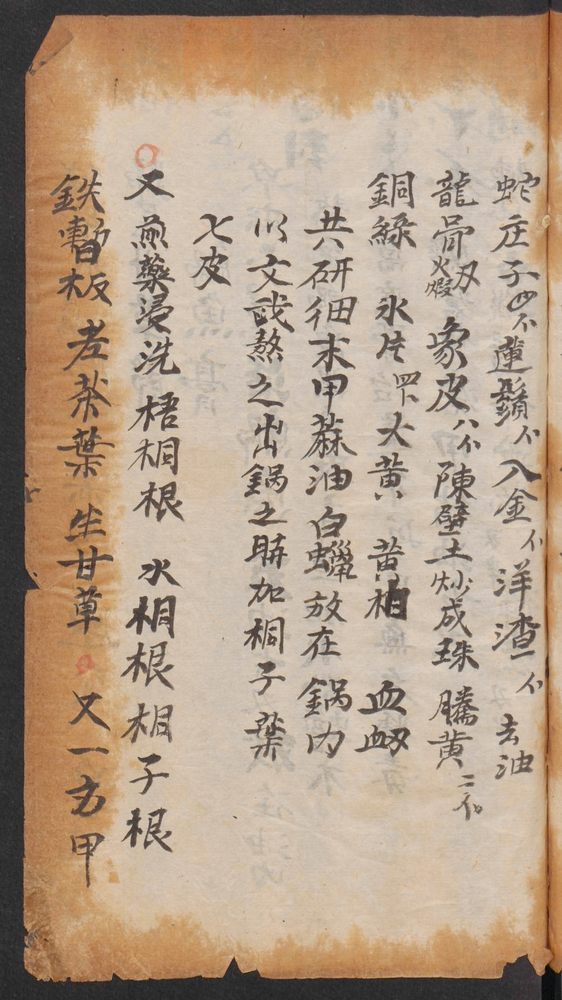 蛇庄子四个蓮鬚个入金个洋渣一个去油
龍骨火煅刄象皮八个陳壁土炒成珠騰黄二个
銅綠 氷片四下大黄 黄柏 血
共研细末甲蔴油白蠟放在鍋内
以文武熬之出鍋之時加桐子葉
七皮
又煎藥燙洗梧桐根 水桐根桐子根
鉄板老茶葉 生甘草 又一方甲